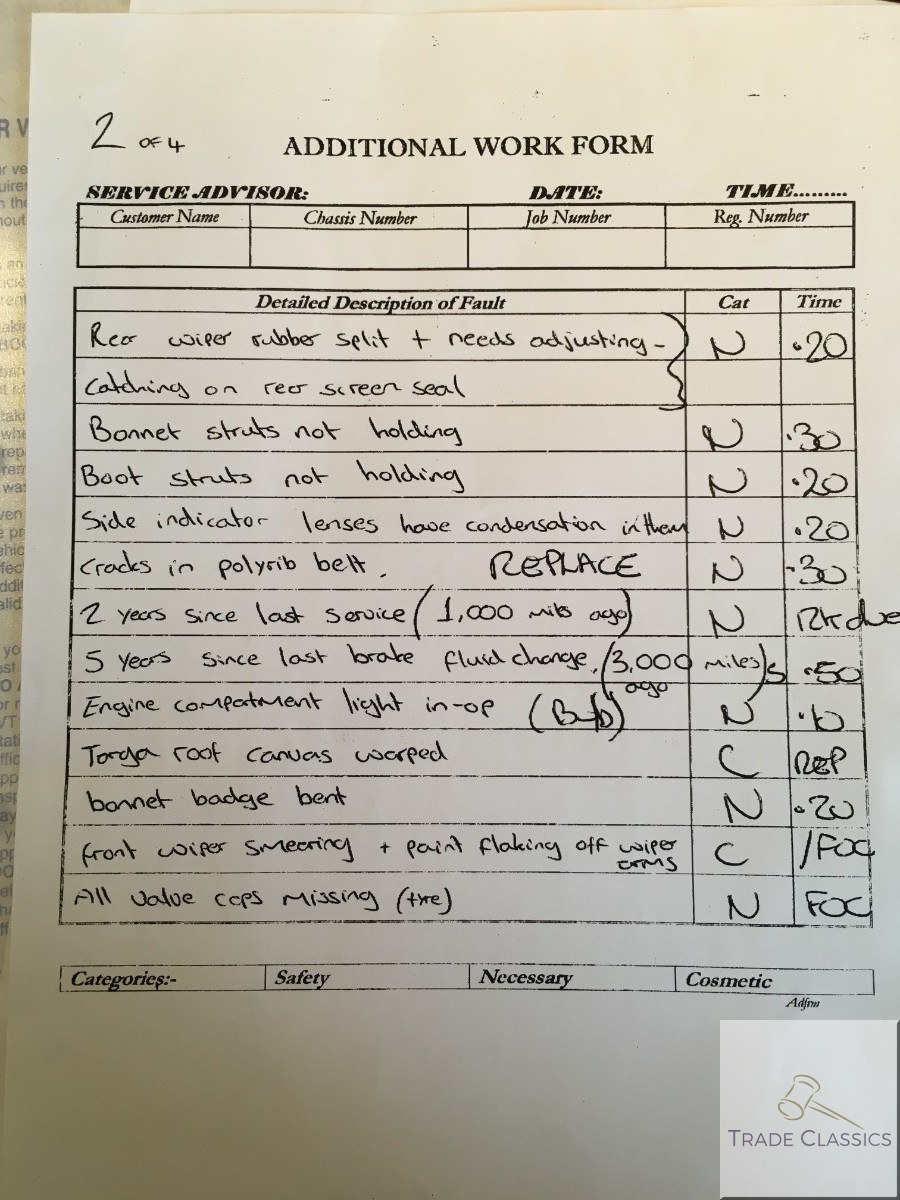 2 OF 4
ADDITIONAL WORK FORM
SERVICE ADVISOR: DATE: TIME.........
Customer Name Chassis Number Job Number Reg. Number
Detailed Description of Fault Cat Time
Rear wiper rubber split + needs adjusting - N .20
Catching on rear screen seal
Bonnet struts not holding N .30
Boot struts not holding N .20
Side indicator lenses have condensation in them N .20
Cracks in polyrib belt. REPLACE N .30
2 years since last service (1,000 miles ago) N due
5 years since last brake fluid change. (3,000 miles) S .50
ago
Engine compartment light in-op N .10
Targa roof canvas warped C REP
bonnet badge bent N .20
front wiper smearing + paint flaking off wiper C /FOC
arms
All valve caps missing (tyre) N FOC
Categories:- Safety Necessary Cosmetic
Adfrm
TRADE CLASSICS